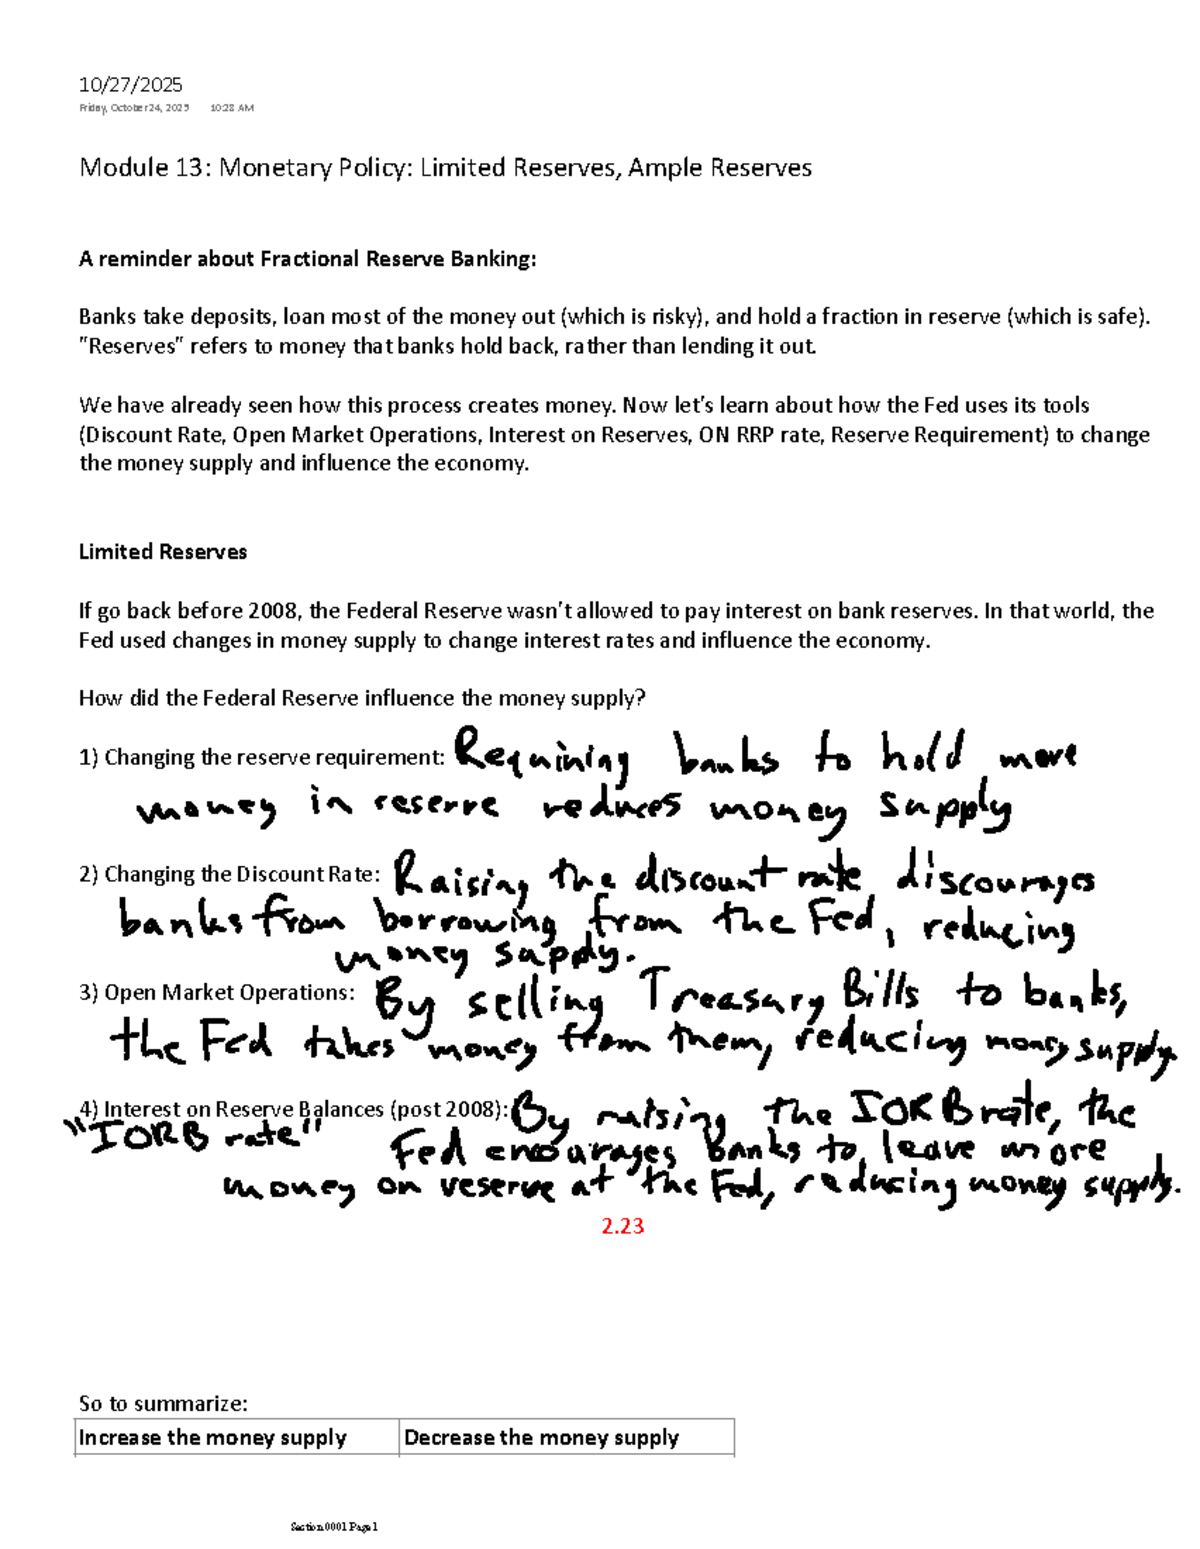 10/27/2025
Friday, October 24, 2025 10:28 AM
Module 13: Monetary Policy: Limited Reserves, Ample Reserves
A reminder about Fractional Reserve Banking:
Banks take deposits, loan most of the money out (which is risky), and hold a fraction in reserve (which is safe).
"Reserves" refers to money that banks hold back, rather than lending it out.
We have already seen how this process creates money. Now let's learn about how the Fed uses its tools
(Discount Rate, Open Market Operations, Interest on Reserves, ON RRP rate, Reserve Requirement) to change
the money supply and influence the economy.
Limited Reserves
If go back before 2008, the Federal Reserve wasn't allowed to pay interest on bank reserves. In that world, the
Fed used changes in money supply to change interest rates and influence the economy.
How did the Federal Reserve influence the money supply?
1) Changing the reserve requirement: Requiring banks to hold more
money in reserve reduces money supply
2) Changing the Discount Rate: Raising the discount rate discourages
banks from borrowing from the Fed, reducing
money supply.
3) Open Market Operations: By selling Treasury Bills to banks,
the Fed takes money from them, reducing money supply.
4) Interest on Reserve Balances (post 2008): By raising the IORB rate, the
"IORB rate" Fed encourages banks to leave more
money on reserve at the Fed, reducing money supply.
2.23
So to summarize:
Increase the money supply Decrease the money supply
Section0001 Page 1